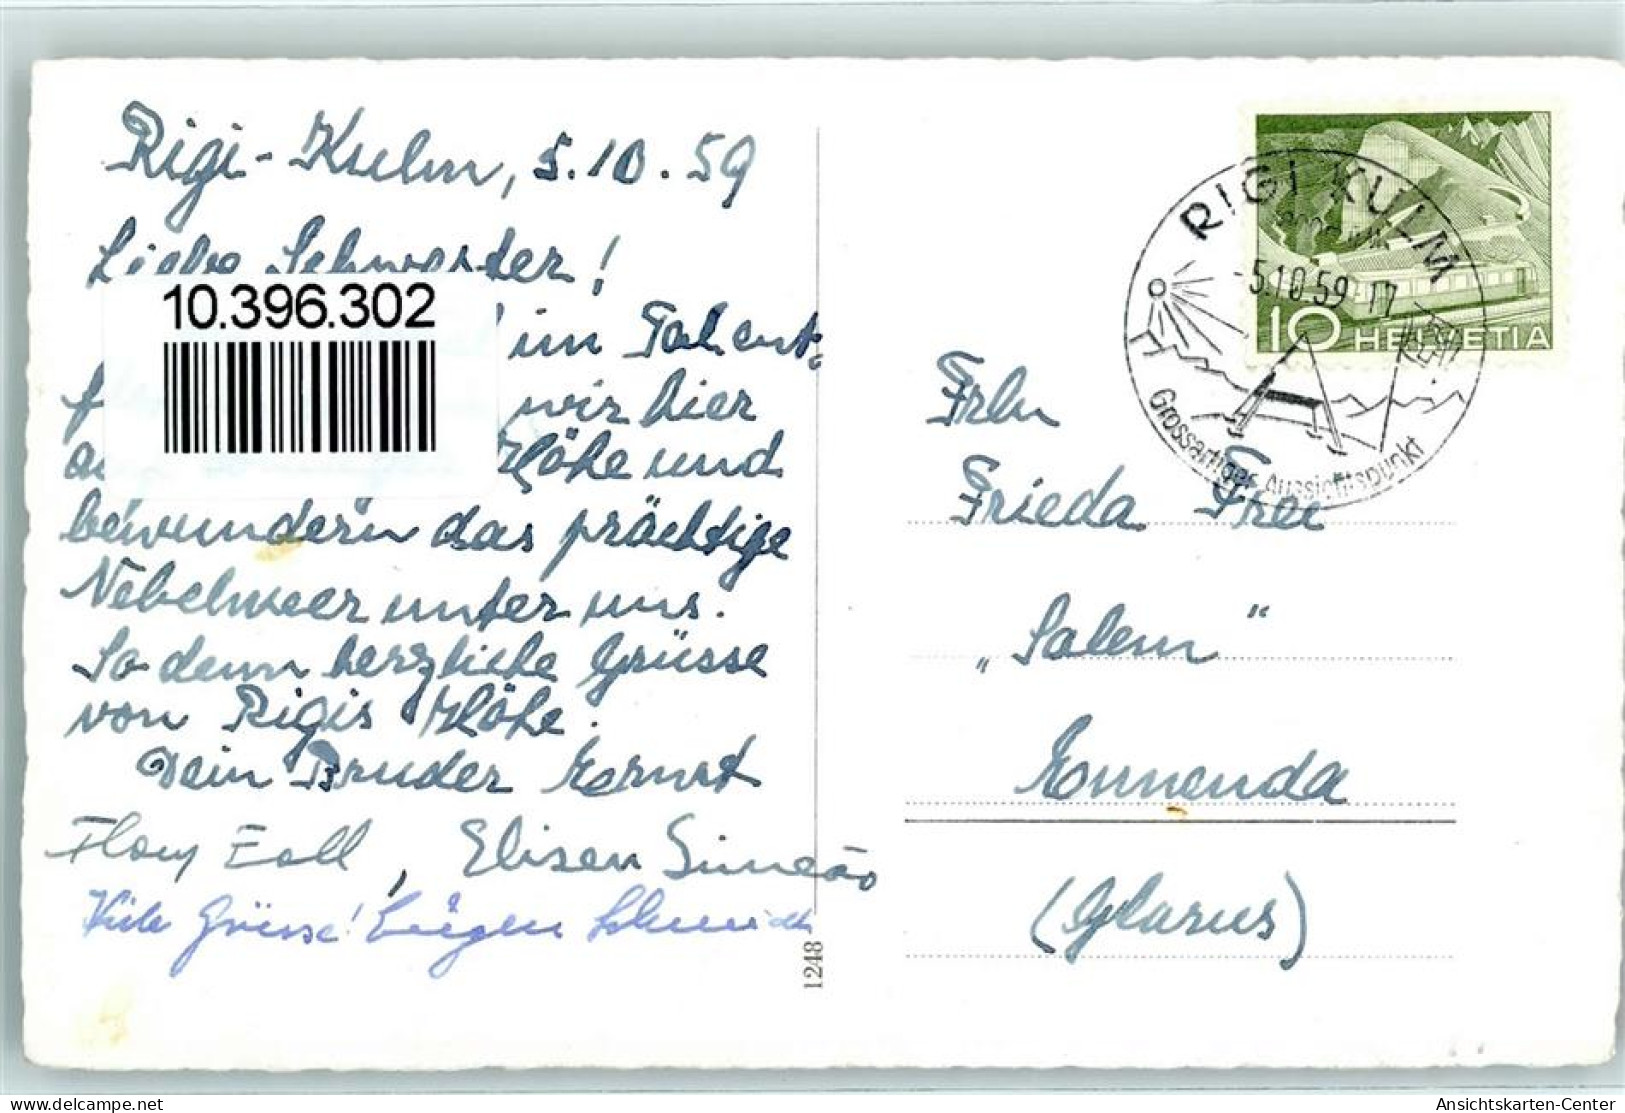 Rigi-Kulm, 5.10.59
Liebe Schwester!
10.396.302
im Tal ent-
wir hier
Höhe und
bewundern das prächtige
Nebelmeer unter uns.
So denn herzliche Grüsse
von Rigis Höhe.
Dein Bruder Ernst
Flory Eoll, Elisen Simeão
Viele Grüsse! Eugen Schmidt
1248
RIGI KULM
-5.10.59 17
Grossartiger Aussichtspunkt
10 HELVETIA
Frln
Frieda Frei
„Salem"
Ennenda
(Glarus)
Ansichtskarten-Center